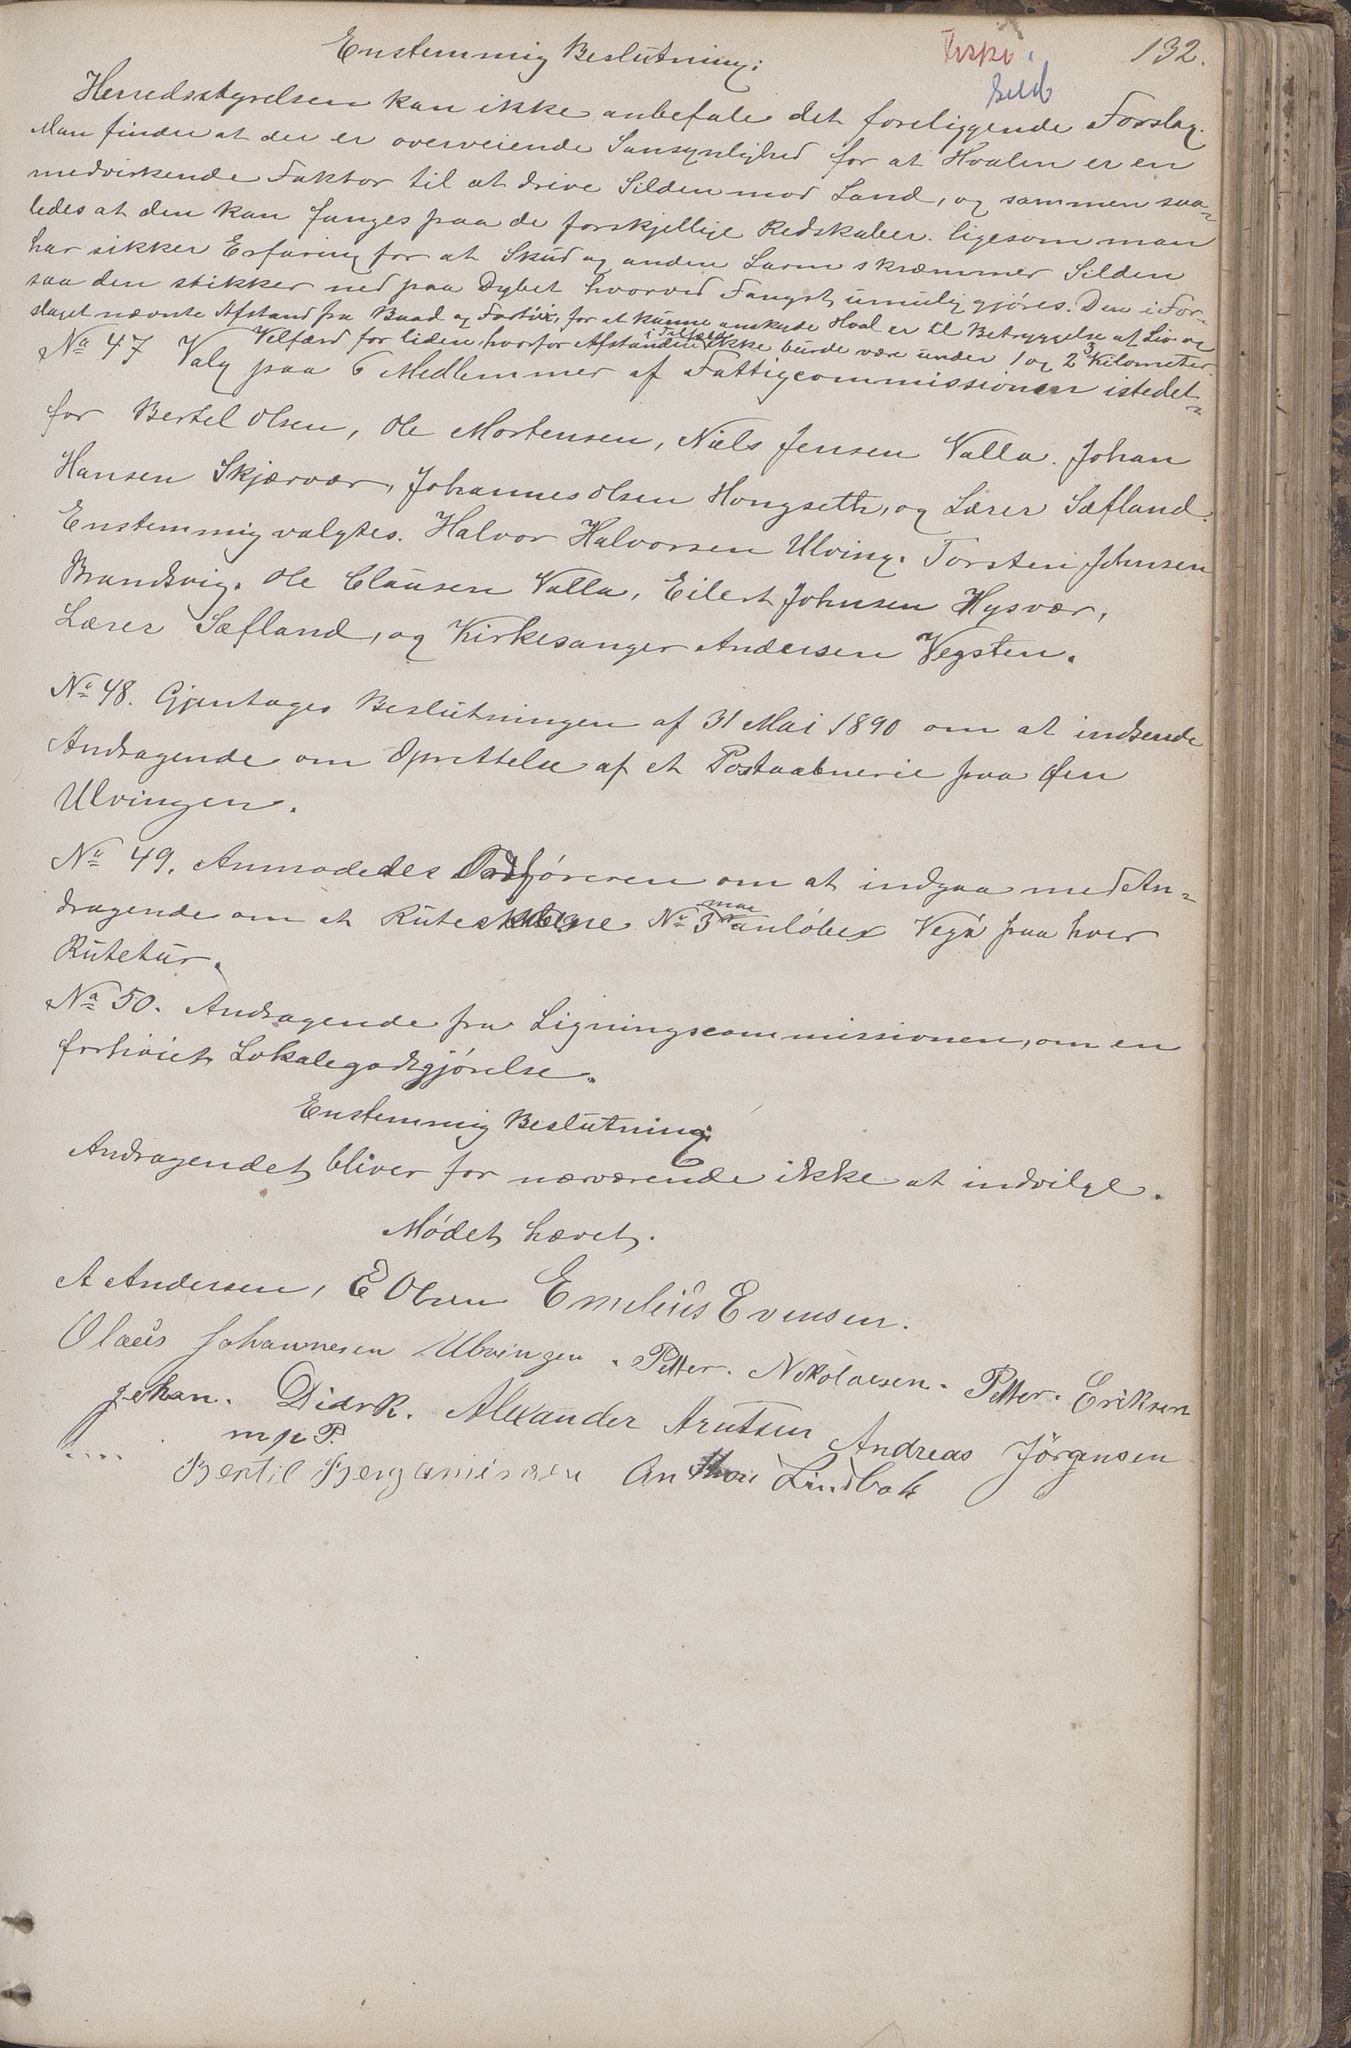 132.
Enstemmig Beslutning:
Sild
Herredsstyrelsen kan ikke anbefale det foreliggende Forslag.
Man finder at der er overveiende Sansynlighed for at Hvalen er en
medvirkende Faktor til at drive Silden mod Land, og sammen saa-
ledes at den kan fanges paa de forskjellige Redskaber. ligesom man
har sikker Erfaring for at Skud og anden Larm skræmmer Silden
saa den stikker ned paa Dybet hvorved Fangst umuliggjøres. Den i For-
slaget nævnte Afstand fra Baad og Fartöi, for at kunne anskyde Hval er til Betryggelse af Liv og
Velfærd for liden, hvorfor Afstanden i Tilfælde ikke burde være under 1 og 2 Kilometer.
No 47 Valg paa 6 Medlemmer af Fattigcommissionen istedet-
for Bertel Olsen, Ole Mortensen, Niels Jensen Valla. Johan
Hansen Skjærvær, Johannes Olsen Hongseth, og Lærer Sæfland.
Enstemmig valgtes. Halvor Halvorsen Ulving. Torsten Johnsen
Brandsvig. Ole Clausen Valla, Eilert Johnsen Hysvær,
Lærer Sæfland, og Kirkesanger Andersen Vegsten.
No 48. Gjentages Beslutningen af 31 Mai 1890 om at indsende
Andragende om Oprettelse af et Postaabnerie paa Øen
Ulvingen.
No 49. Anmodedes Ordføreren om at indgaa med An-
dragende om at Ruteskibene No 3 maa anløbe Vegø paa hver
Rutetur.
No 50. Andragende fra Ligningscommissionen, om en
forhöiet Lokalegodtgjørelse.
Enstemmig Beslutning:
Andragendet bliver for nærværende ikke at indvilge.
Mødet hævet.
A Andersen, E Olsen Emelius Evensen.
Olaus Johannesen Ulvingen. Petter. Nikolaisen. Petter. Eriksen
Johan. Didrk. Alexander Arntsen Andreas Jörgensen
m p P.
Bertil Benjaminsen Anthon Lindbak